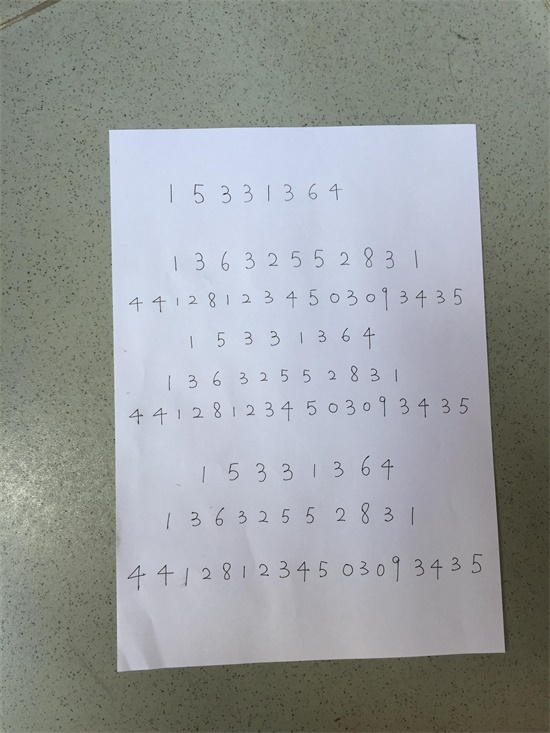 15331364
13632552831
441281234503093435
15331364
13632552831
441281234503093435
15331364
13632552831
441281234503093435